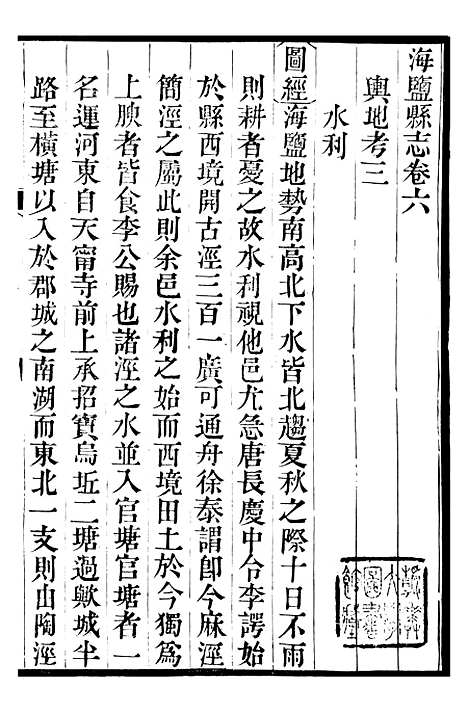 海鹽縣志卷六
輿地考三
水利
圖經海鹽地勢南高北下水皆北趨夏秋之際十日不雨
則耕者憂之故水利視他邑尤急唐長慶中令李諤始
於縣西境開古涇三百一廣可通舟徐泰謂卽今麻涇
簡涇之屬此則余邑水利之始而西境田土於今獨爲
上腴者皆食李公賜也諸涇之水並入官塘官塘者一
名運河東自天甯寺前上承招寶烏坵二塘過歟城半
路至橫塘以入於郡城之南湖而東北一支則由陶涇